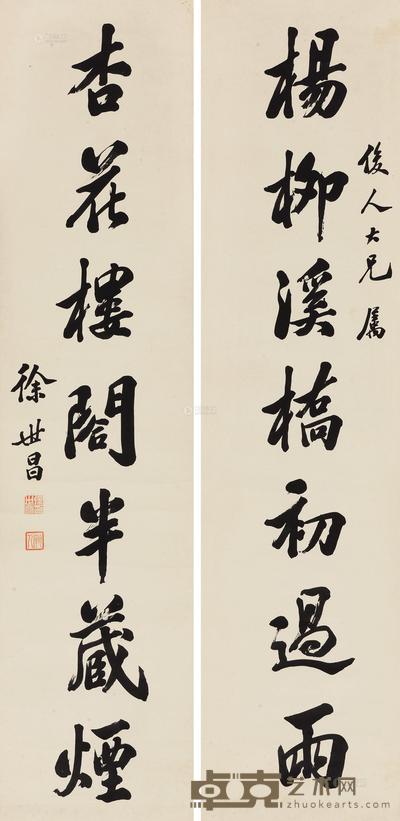 俊人大兄属
楊柳溪橋初過雨
杏花樓閣半藏煙
徐世昌
卓克艺术网
zhuokearts.com